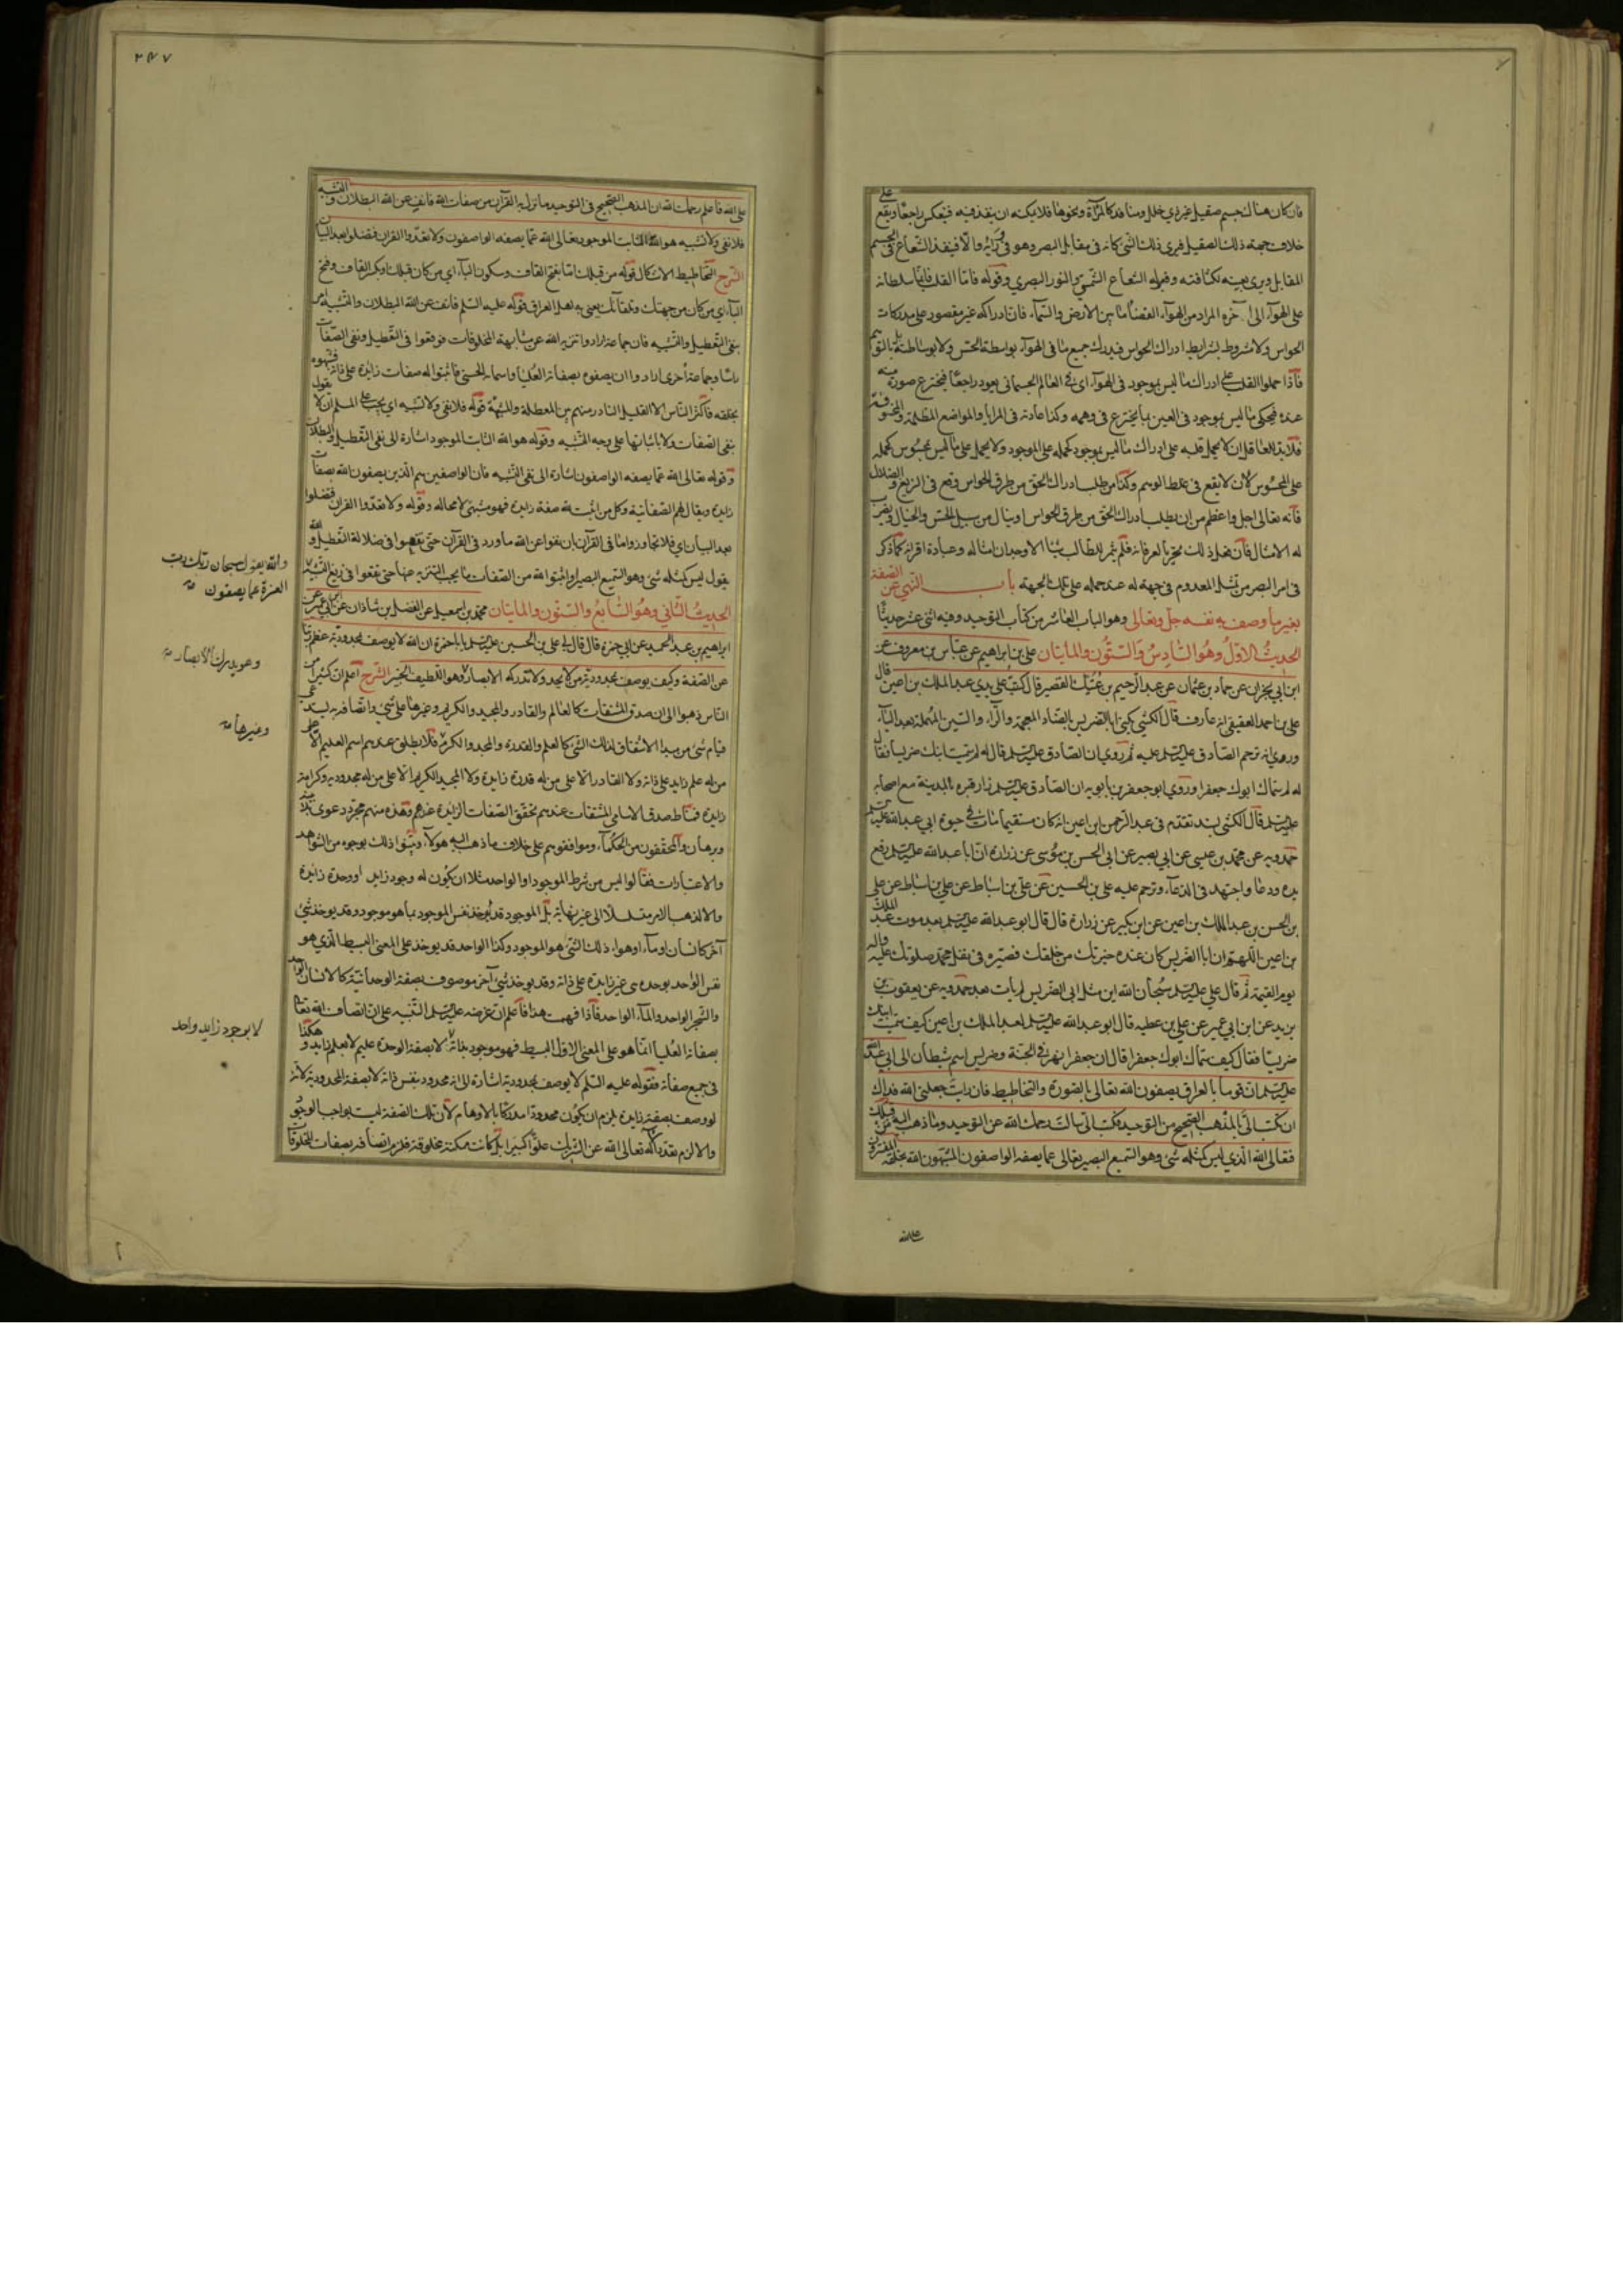 فان كان هناك جسم صقيل غير ذي خلل ومنافذ كالمرآة ونحوها فلا يمكنه ان ينفذ فيه فينعكس راجعا ويقع على
خلاف جهة ذلك الصقيل فيرى ذلك الشي كانه في مقابل البصر وهو في ورائه والا فينفذ الشعاع في الجسم
المقابل ويرى بعينه بكثافته وقبوله الشعاع الشمسي والنور البصري وقوله فاما القلب فانما سلطانه
على الهوآء الى آخره المراد من الهوآء الفضاء ما بين الارض والسمآء فان ادراكه غير مقصور على مدركات
الحواس ولا مشروط بشرايط ادراك الحواس فيدرك جميع ما في الهوآء بواسطة الحس ولا بوساطته بل بالتوهم
فاذا حمل القلب على ادراك ما ليس بموجود في الهوآء اي في العالم الجسماني يعود راجعا فيخترع صورة منه
عنده فيحكي ما ليس بموجود في العين بما يخترع في وهمه وكذا عادته في المرايا والمواضع المظلمة والمخوفة
فلا بد للعاقل ان لا يحمل قلبه على ادراك ما ليس بموجود كحمله على الموجود ولا يحمل على ما ليس بمحسوس كحمله
على المحسوس لان لا يقع في غلط الوهم وكذا من طلب ادراك الحق من طرق الحواس وقع في الزيغ والضلال
فانه تعالى اجل واعظم من ان يطلب ادراك الحق من طرق الحواس او ينال من سبيل الحس والخيال ويضرب
له الامثال فان فعل ذلك فلم يثمر للطالب شيئا الا وجدان امثاله وعبادة اقرانه كما ذكر
في امر البصر من تمثل المعدوم في جهة له عند حمله على تلك الجهة باب النهي عن الصفة
بغير ما وصف به نفسه جل وتعالى وهو الباب العاشر من كتاب التوحيد وفيه اثنى عشر حديثا
الحديث الاول وهو السادس والستون والمايتان علي بن ابراهيم عن عباس بن معروف عن
ابن ابي نجران عن حماد بن عثمان عن عبد الرحيم بن عتيك القصير قال كتبت على يدي عبد الملك بن اعين قال
علي بن احمد العقيقي انه عارف قال الكشي يكنى ابا الضريس بالضاد المعجمة والرآء والسين المهملة بعد اليآء
وروي انه ترحم الصادق عليه السلم عليه ثم روي ان الصادق عليه السلم قال له لم سميت ابنك ضريسا فقال
له لم سماك ابوك جعفرا وروي ابو جعفر بن بابويه ان الصادق عليه السلم زار قبره بالمدينة مع اصحابه
عليه السلم قال الكشي بسند تقدم في عبد الرحمن ابن اعين انه كان مستقيما مات في حيوة ابي عبد الله عليه السلم
حمدويه عن محمد بن عيسى عن ابي بصير عن ابي الحسن بن موسى عن زرارة ان ابا عبد الله عليه السلم رفع
يده ودعا واجتهد في الدعآء وترحم عليه علي بن الحسين عن علي بن اسباط عن علي بن اسباط عن علي
بن الحسن بن عبد الملك بن اعين عن ابن بكير عن زرارة قال قال ابو عبد الله عليه السلم بعد موت عبد الملك
بن اعين اللهم ان ابا الضريس كان عنده خيرتك من خلقك فصيره في ثقل محمد صلوتك عليه واله
يوم القيمة ثم قال علي عليه السلم سبحان الله اين مثل ابي الضريس لم يات بعد حمدويه عن يعقوب بن
يزيد عن ابن ابي عمير عن علي بن عطيه قال ابو عبد الله عليه السلم لعبد الملك بن اعين كيف سميت ابنك
ضريسا فقال كيف سماك ابوك جعفرا قال ان جعفرا نهر في الجنة وضريس اسم شيطان الى ابي عبد الله
عليه السلم ان قوما بالعراق يصفون الله تعالى بالصورة والتخاطيط فان رايت جعلني الله فداك
ان تكتب الي بالمذهب الصحيح من التوحيد فكتب الي سالت رحمك الله عن التوحيد وما ذهب اليه من قبلك
فتعالى الله الذي ليس كمثله شي وهو السميع البصير تعالى عما يصفه الواصفون المشبهون الله بخلقه المفترون
على الله
٢٤٧
على الله فاعلم رحمك الله ان المذهب الصحيح في التوحيد ما نزل به القرآن من صفات الله فانف عن الله البطلان والتشبيه
فلا نفي ولا تشبيه هو الله الثابت الموجود تعالى الله عما يصفه الواصفون ولا تعدوا القران فتضلوا بعد البيان
الشرح التخاطيط الاشكال قوله من قبلك اما بفتح القاف وسكون البآء اي من كان قبلك او بكسر القاف وفتح
البآء اي من كان من جهتك وتلقائك يعني به اهل العراق قوله عليه السلم فانف عن الله البطلان والتشبيه امر
بنفي التعطيل والتشبيه فان جماعة ارادوا تنزيه الله عن مشابهة المخلوقات فوقعوا في التعطيل ونفي الصفات
راسا وجماعة اخرى ارادوا ان يصفوه بصفاته العليا واسمائه الحسنى فاثبتوا له صفات زايدة على ذاته فشبهوه
بخلقه فاكثر الناس الا القليل النادر منهم بين المعطلة والمشبهة قوله فلا نفي ولا تشبيه اي يجب على المسلم ان لا يقول
بنفي الصفات ولا باثباتها على وجه التشبيه وقوله هو الله الثابت الموجود اشارة الى نفي التعطيل والبطلان
وقوله تعالى الله عما يصفه الواصفون اشارة الى نفي التشبيه فان الواصفين هم الذين يصفون الله بصفات
زايدة ويقال لهم الصفاتية وكل من اثبت لله صفة زايدة فهو مشبه لا محاله وقوله ولا تعدوا القران فتضلوا
بعد البيان اي فلا تجاوزوا ما في القرآن بان تنفوا عن الله ما ورد في القرآن حتى تقعوا في ضلالة التعطيل والله
يقول ليس كمثله شي وهو السميع البصير او اثبتوا لله من الصفات ما يجب التنزيه عنها حتى تقعوا في زيغ التشبيه
والله يقول سبحان ربك رب
العزة عما يصفون
الحديث الثاني وهو السابع والستون والمايتان محمد بن اسمعيل عن الفضل بن شاذان عن ابن ابي عمير عن
ابراهيم بن عبد الحميد عن ابي حمزة قال قال لي علي بن الحسين عليه السلم يا با حمزة ان الله لا يوصف بمحدودية عظم ربنا
عن الصفة وكيف يوصف بمحدودية من لا يحد ولا تدركه الابصار وهو اللطيف الخبير الشرح اعلم ان كثيرا من
وهو يدرك الابصار
الناس ذهبوا الى ان صدق المشتقات كالعالم والقادر والمجيد والكريم وغيرها على شي واتصافه به يستدعي
قيام شي من مبدا الاشتقاق لذلك الشي كالعلم والقدرة والمجد والكرم فلا يطلق عندهم اسم العليم الا على
وغيرها
من له علم زايد على ذاته ولا القادر الا على من له قدرة زايدة ولا المجيد الكريم الا على من له مجدودية وكرامة
زايدة فمناط صدق الاسامي المشتقات عندهم تحقق الصفات الزايدة عندهم وهذه منهم مجرد دعوى بلا بينة
وبرهان والمحققون من الحكمآء وموافقوهم على خلاف ما ذهب اليه هولآء وبينوا ذلك بوجوه من الشواهد
والاعتبارات فقالوا ليس من شرط الموجود او الواحد مثلا ان يكون له وجود زايد او وحدة زايدة
والا لذهب الامر متسلسلا الى غير نهاية بل الموجود قد يوخذ نفس الموجود بما هو موجود وقد يوخذ شي
آخر كانسان او مآء او هوآء ذلك الشي هو الموجود وكذا الواحد قد يوخذ على المعنى البسيط الذي هو
نفس الواحد بوحده هي غير زايدة على ذاته وقد يوخذ شي آخر موصوف بصفة الوحدانية كالانسان الواحد
والشجر الواحد والمآء الواحد فاذا فهمت هذا فاعلم ان غرضه عليه السلم التنبيه على ان اتصاف الله تعالى
بصفاته العليا انما هو على المعنى الاول البسيط فهو موجود بذاته لا بصفة الوحدة عليم لا بعلم زايد وهكذا
لا بوجود زايد واحد
في جميع صفاته فقوله عليه السلم لا يوصف بمحدودية اشارة الى انه محدود بنفس ذاته لا بصفة المحدودية لانه
لو وصف بصفة زايدة يلزم ان يكون محدودا مدركا بالاوهام لان تلك الصفة ليست بواجب الوجود
والا لزم تعدد الاله تعالى الله عن الشريك علوا كبيرا بل كانت ممكنة مخلوقة فلزم اتصافه بصفات المخلوقات